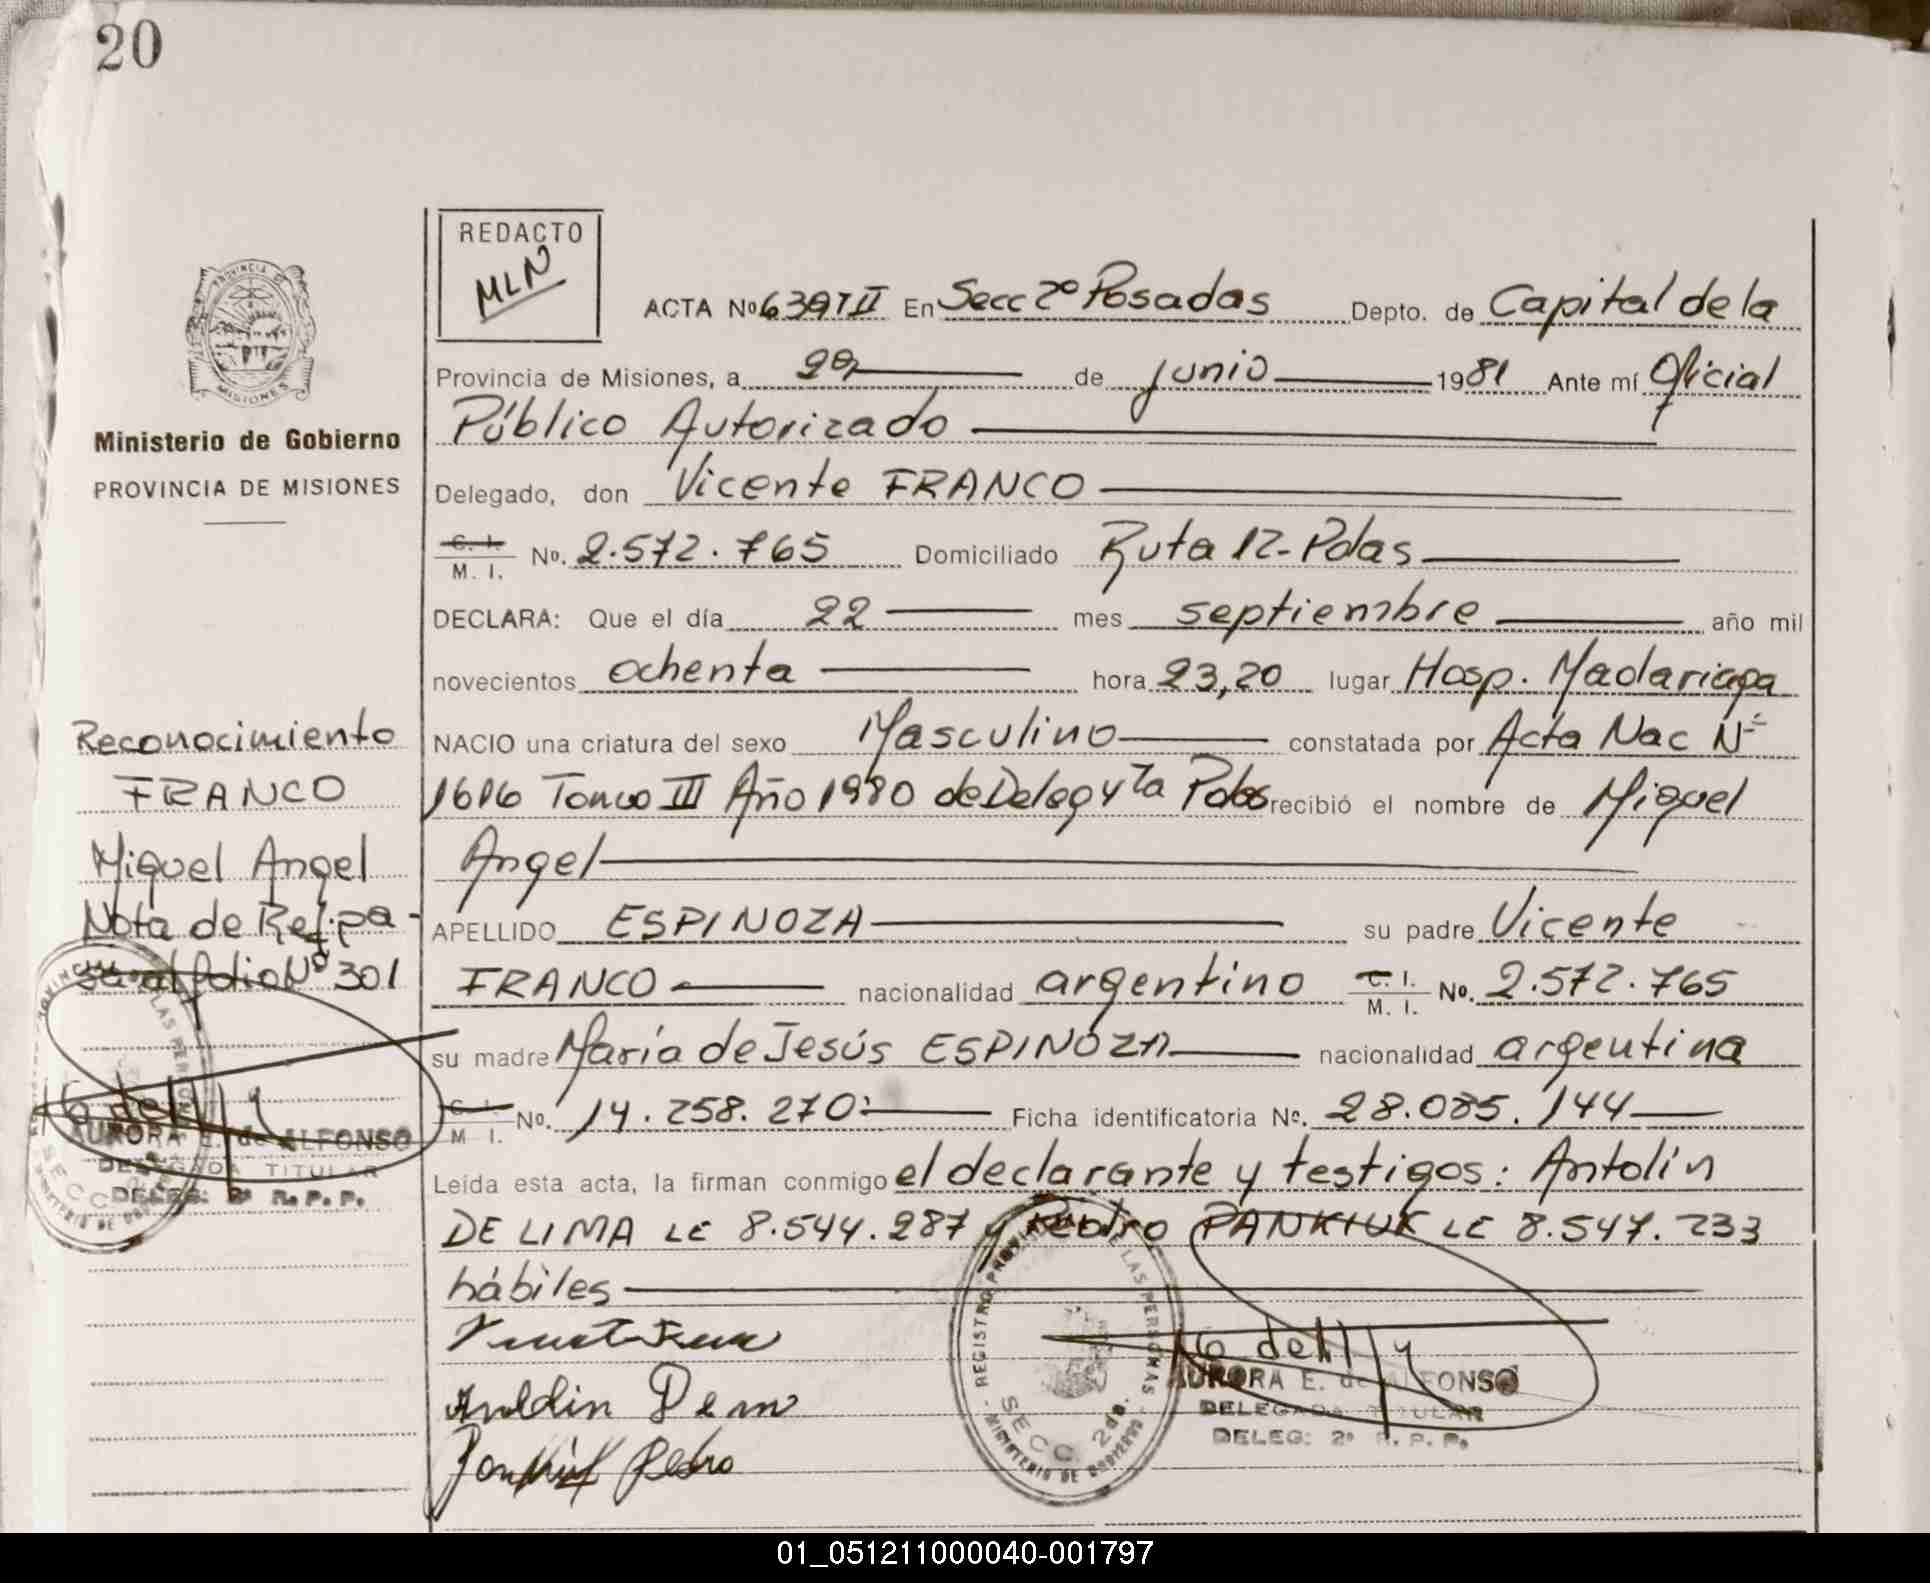 20
REDACTO
MLN
ACTA Nº 639 T II En Secc 2º Posadas Depto. de Capital de la
Provincia de Misiones, a de junio 1981 Ante mí Oficial
Público Autorizado
Delegado, don Vicente FRANCO
C. I. / M. I. Nº. 2.572.765 Domiciliado Ruta 12-Pdas
DECLARA: Que el día 22 mes septiembre año mil
novecientos ochenta hora 23,20 lugar Hosp. Madariaga
NACIO una criatura del sexo Masculino constatada por Acta Nac Nº
1616 Tomo III Año 1980 de Deleg 4ta Pdas recibió el nombre de Miguel
Angel
APELLIDO ESPINOZA su padre Vicente
FRANCO nacionalidad argentino C. I. / M. I. Nº. 2.572.765
su madre María de Jesús ESPINOZA nacionalidad argentina
C. I. / M. I. Nº. 14.258.270 Ficha identificatoria Nº. 28.085.144
Leída esta acta, la firman conmigo el declarante y testigos: Antolín
DE LIMA LE 8.544.287 y Pedro PANKIUK LE 8.547.233
hábiles
Pedro
REGISTRO PROVINCIAL DE LAS PERSONAS
SECC 2da.
MINISTERIO DE GOBIERNO
AURORA E. de ALFONSO
DELEGADA TITULAR
DELEG: 2ª R. P. P.
PROVINCIA DE
MISIONES
Ministerio de Gobierno
PROVINCIA DE MISIONES
Reconocimiento
FRANCO
Miguel Angel
Nota de Ref. pa-
sa al folio Nº 301
AURORA E. de ALFONSO
DELEGADA TITULAR
DELEG: 2ª R. P. P.
01_051211000040-001797